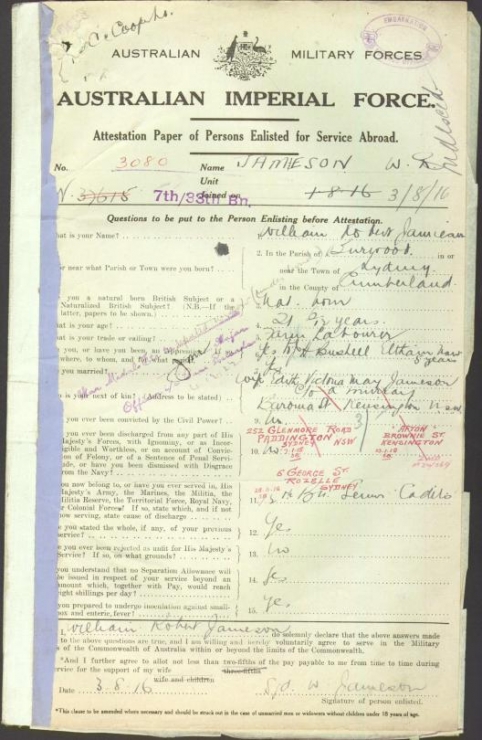 AUSTRALIAN MILITARY FORCES
AUSTRALIAN IMPERIAL FORCE.
Attestation Paper of Persons Enlisted for Service Abroad.
No. 3080 Name JAMIESON W. R
Unit
N. 7th/33th Bn. Joined on 1-8-16 3/8/16
Questions to be put to the Person Enlisting before Attestation.
hat is your Name? William Robert Jamieson
2. In the Parish of Burwood in or
r near what Parish or Town were you born? near the Town of Sydney
in the County of Cumberland
you a natural born British Subject or a
Naturalized British Subject? (N.B.—If the
latter, papers to be shown.) 3. Nat. born
hat is your age? 4. 21 years
hat is your trade or calling? 5. Labourer
you, or have you been, an Apprentice? If so,
where, to whom, and for what 6. Bushell
you married? 7. Yes
o is your next of kin? (Address to be stated) 8. Wife Edith Victoria May Jamieson
c/o
St Kensington NSW
ve you ever been convicted by the Civil Power? 9. No
252 GLENMORE ROAD
PADDINGTON
SYDNEY NSW
BROWN ST
KENSINGTON
ve you ever been discharged from any part of His
Majesty's Forces, with Ignominy, or as Incor-
rigible and Worthless, or on account of Convic-
tion of Felony, or of a Sentence of Penal Servi-
tude, or have you been dismissed with Disgrace
from the Navy? 10. No
6 GEORGE ST
ROZELLE
SYDNEY
you now belong to, or have you ever served in, His
Majesty's Army, the Marines, the Militia, the
Militia Reserve, the Territorial Force, Royal Navy,
or Colonial Forces? If so, state which, and if not
now serving, state cause of discharge 11. Senior Cadets
ve you stated the whole, if any, of your previous
service? 12. Yes
ve you ever been rejected as unfit for His Majesty's
Service? If so, on what grounds? 13. No
you understand that no Separation Allowance will
be issued in respect of your service beyond an
amount which, together with Pay, would reach
eight shillings per day? 14. Yes
you prepared to undergo inoculation against small-
pox and enteric fever? 15. Yes
I, William Robert Jamieson do solemnly declare that the above answers made
to the above questions are true, and I am willing and hereby voluntarily agree to serve in the Military
s of the Commonwealth of Australia within or beyond the limits of the Commonwealth.
*And I further agree to allot not less than two-fifths of the pay payable to me from time to time during
three-fifths
service for the support of my wife
wife and children
Date 3-8-16 Sgd W Jamieson
Signature of person enlisted.
*This clause to be amended where necessary and should be struck out in the case of unmarried men or widowers without children under 18 years of age.